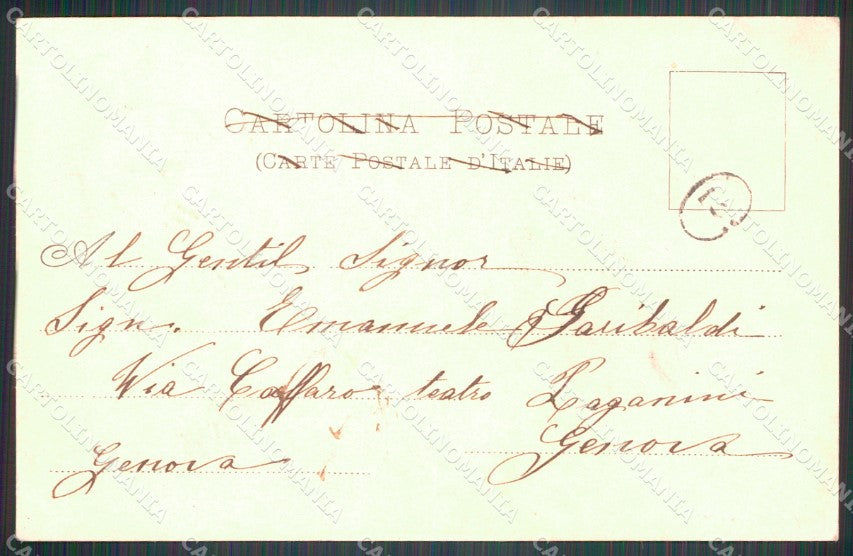 CARTOLINA POSTALE
(CARTE POSTALE D'ITALIE)
Al Gentil Signor
Sign. Emanuele Garibaldi
Via Caffaro teatro Paganini
Genova
Genova
CARTOLINOMANIA